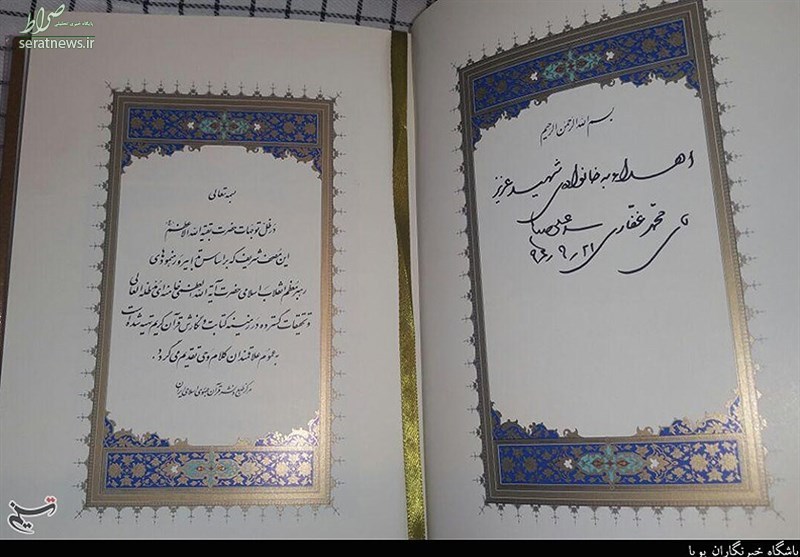 صراط
پایگاه خبری تحلیلی
seratnews.ir
بسم الله الرحمن الرحیم
اهداء به خانواده‌ی شهید عزیز
آقای محمد غفاری
سید علی
۹۶٫۹٫۲۱
بسمه تعالی
در ظل توجهات حضرت بقیة الله الاعظم
این مصحف شریف که بر اساس تدابیر و رهنمودهای
رهبر معظم انقلاب اسلامی حضرت آیة الله العظمی خامنه‌ای مد ظله العالی
و تحقیقات گسترده در زمینه کتابت و نگارش قرآن کریم تهیه شده است
به عموم علاقمندان کلام وحی تقدیم می‌گردد.
مرکز طبع و نشر قرآن جمهوری اسلامی ایران
تسنیم
باشگاه خبرنگاران پویا